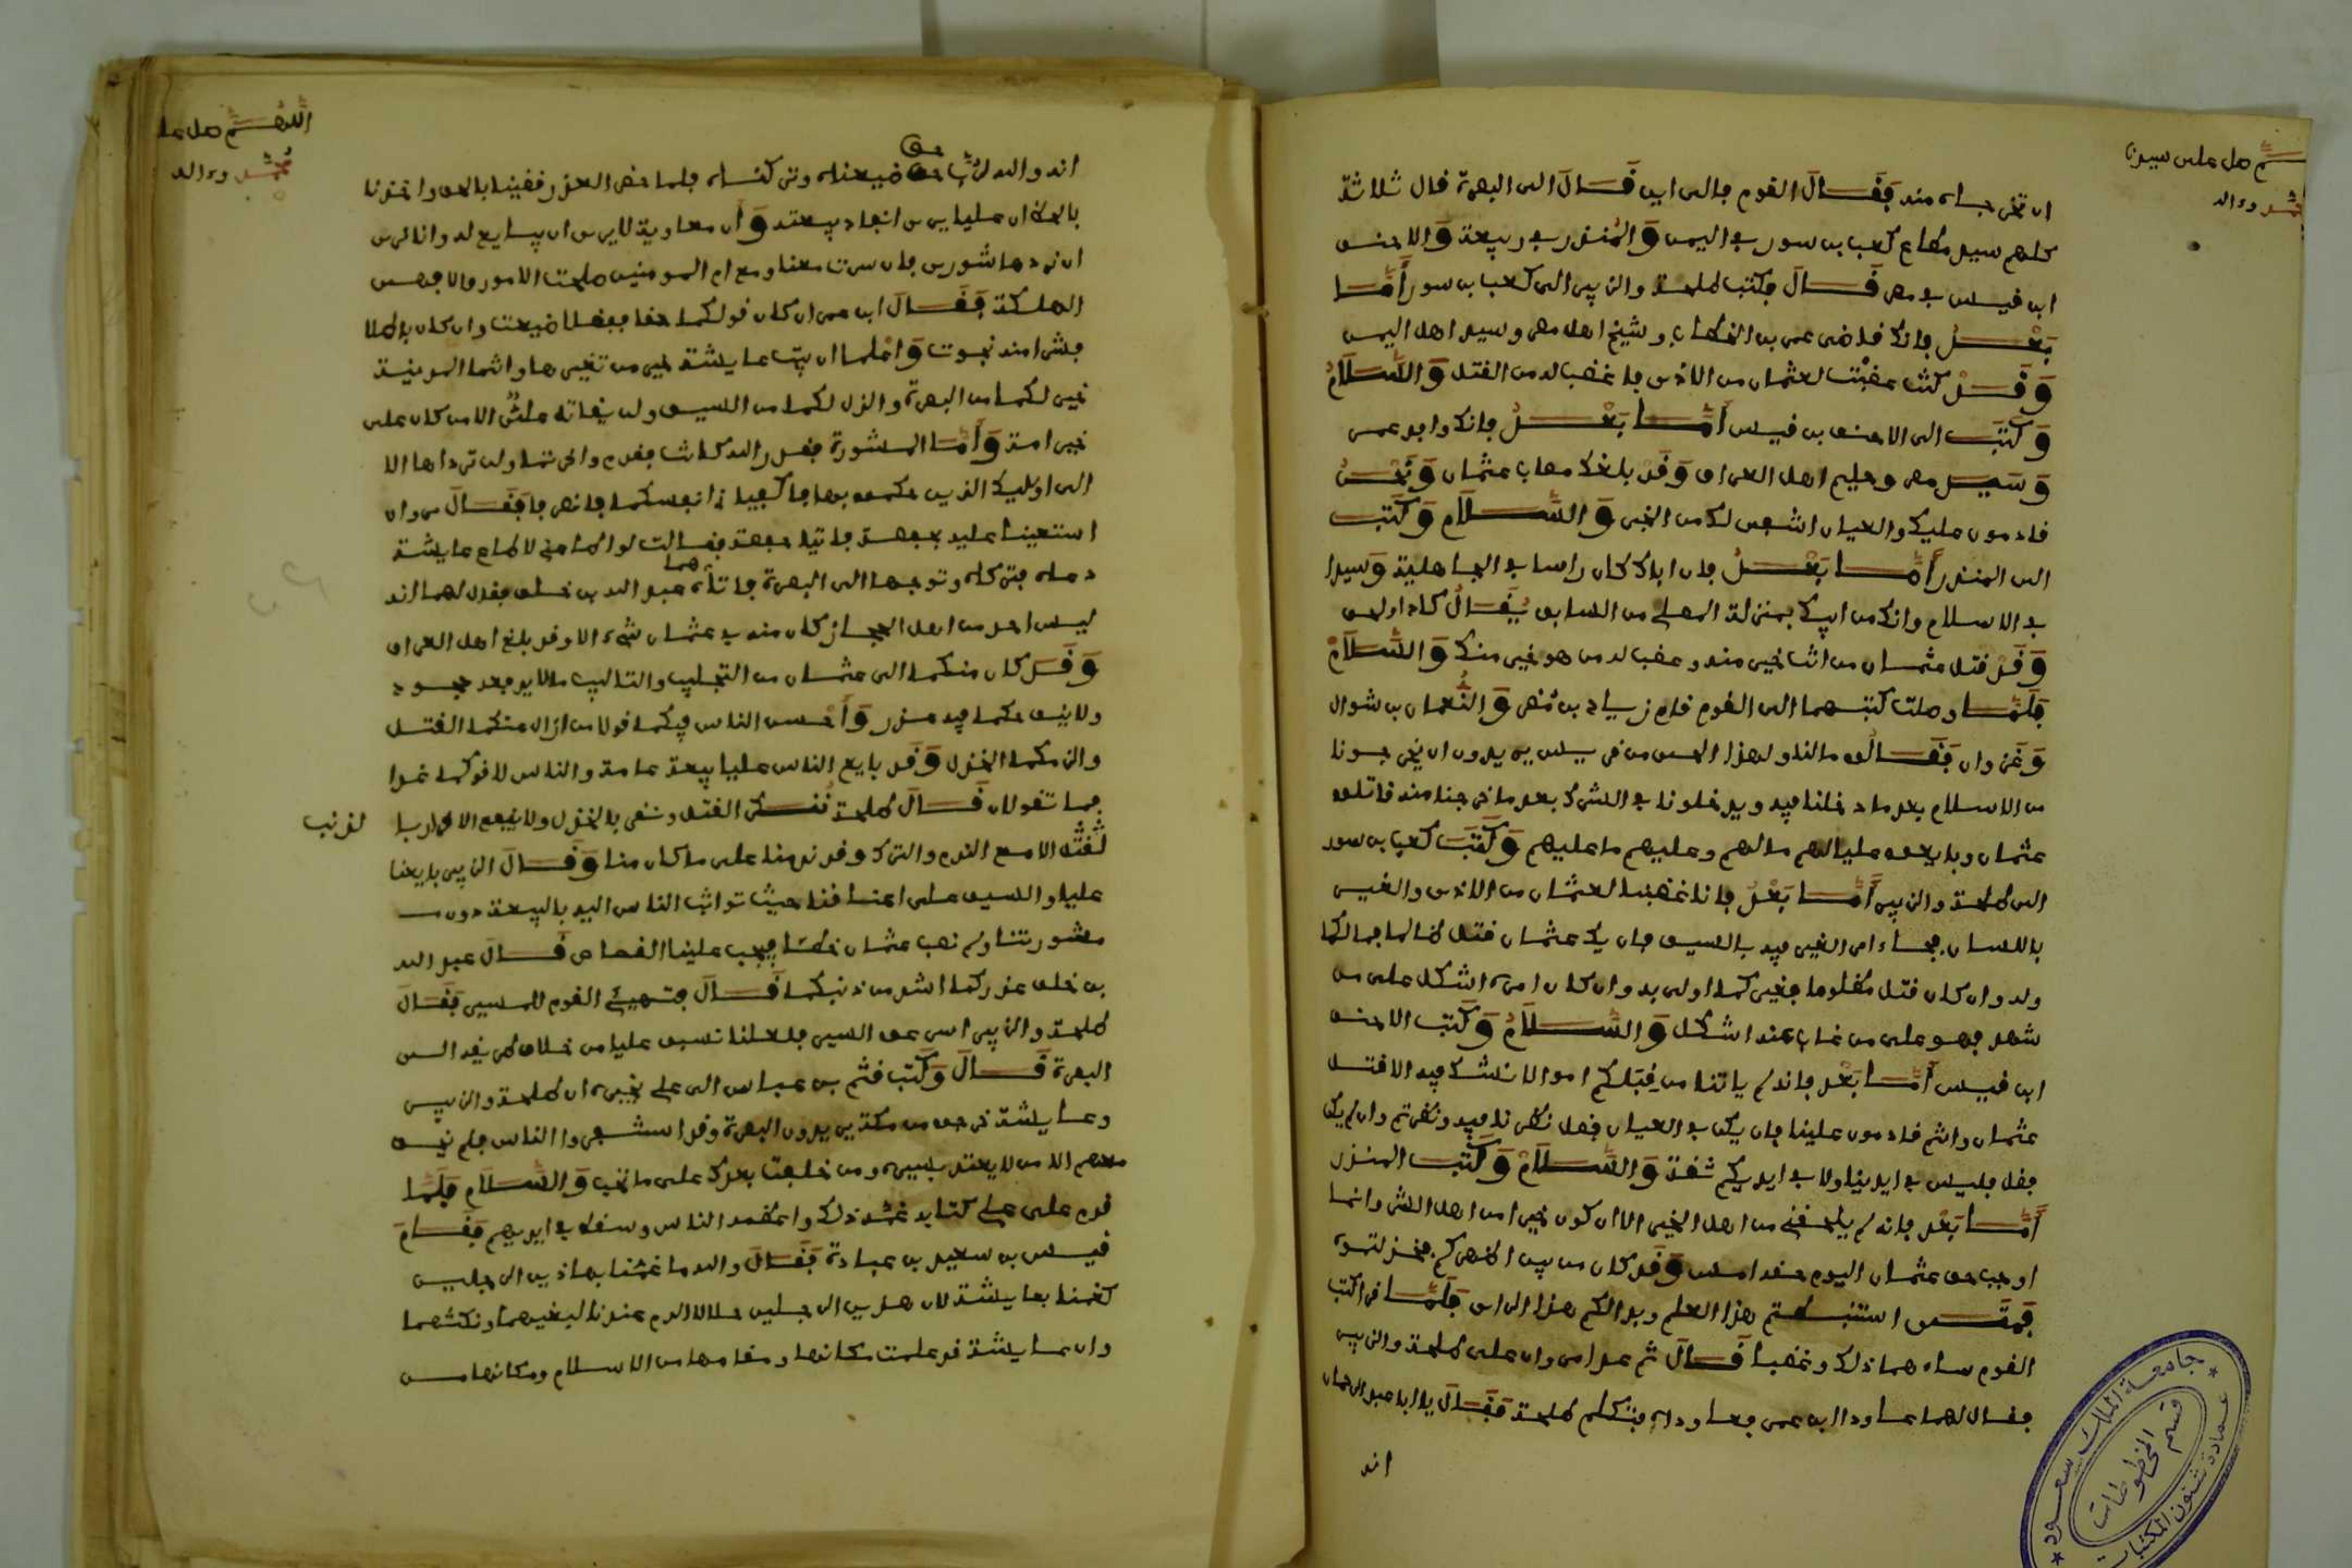 ان تخرجاه منه فَقَالَ القوم فالى اين قَالَ الى البصرة فان ثلاثة
كلهم سيد مطاع كعب بن سور في اليمن وَالمُنذر في ربيعة وَالاحنف
ابن قيس في مضر قَالَ فكتب طلحة والزبير الى كعب بن سور أَمَّا
بَعْدُ فانك قاضي عمر بن الخطاب وشيخ اهل مضر وسيد اهل اليمن
وَقَدْ كنتَ غضبْت لعثمان من الاذى فاغضب له من القتل وَالسَّلَامُ
وَكَتَبَ الى الاحنف بن قيس أَمَّا بَعْدُ فانك وافد عمر
وَسَيد مضر وحليم اهل العراق وَقَدْ بلغك مصاب عثمان وَنَحْنُ
قادمون عليك والعيان اشفى لك من الخبر وَالسَّلَام وَكَتَبَ
الى المنذر أَمَّا بَعْدُ فان اباك كان راسا في الجاهلية وَسيدا
في الاسلام وانك من ابيك بمنزلة المصلي من السابق يُقَالُ كاد او لحق
وَقَدْ قتل عثمان من انت خير منه وغضب له من هو خير منك وَالسَّلَامُ
فَلَمَّا وصلت كتبهما الى القوم قام زياد بن مُضر وَالنُّعمان بن شوال
وَغزوان فَقَالُوا مالنا ولهذا الحي من قريش يريدون ان يخرجونا
من الاسلام بعد ما دخلنا فيه ويدخلونا في الشرك بعد ما خرجنا منه قاتلوا
عثمان وبايعوا عليا لهم ما لهم وعليهم ما عليهم وَكَتَبَ كعب بن سور
الى طلحة والزبير أَمَّا بَعْدُ فانا غضبنا لعثمان من الاذى والغير
باللسان فجاء امر الغير فيه بالسيف فان يك عثمان قتل ظالما فما لكما
وله وان كان قتل مظلوما فغيركما اولى به وان كان امره اشكل على من
شهد فهو على من غاب عنه اشكل وَالسَّلَامُ وَكَتَبَ الاحنف
ابن قيس أَمَّا بَعْد فانه لم ياتنا من قِبَلكم امر لا نشك فيه الا قتل
عثمان وانتم قادمون علينا فان يكن في العيان فضل نظرنا فيه ونظرتم وان لم يكن
فضل فليس في ايدينا ولا في ايديكم ثقة وَالسَّلَامُ وَكَتَبَ المنذر
أَمَّا بَعْد فانه لم يلحقني من اهل الخير الا ان كون خيرا من اهل الشر وانما
اوجب حق عثمان اليوم حقه امس وَقَد كان من بين اظهركم فخذلتموه
فَمَتَى استنبطتم هذا العلم وبدا لكم هذا الراي فَلَمَّا قرا كتب
القوم ساءهما ذلك وغضبا قَالَ ثم غدا مروان على طلحة والزبير
فقال لهما عاودا ابن عمر فعاوداه فتكلم طلحة فَقَالَ يا ابا عبد الرحمان
انه
جامعة الملك سعود
قسم المخطوطات
عمادة شئون المكتبات
صل على سيدنا
محمد وءاله
اللهم صل على
محمد وءاله
انه والله لرُبَّ حق ضيعناه وتركناه فلما حضر العذر قضينا بالحق واخذنا
بالحظ ان عليا يرى انفاد بيعته وَأن معاوية لا يرى ان يبايع له وانا نرى
ان نردها شورى فان سرت معنا ومع ام المومنين صلحت الامور والا فهي
الهلكة فَقَالَ ابن عمر ان كان قولكما حقا ففضلا ضيعت وان كان باطلا
فشر منه نجوت وَاعْلما ان بيت عايشة خير من هودجها وانتما المدينة
خير لكما من البصرة والذل لكما من السيف ولن يقاتل عليا الا من كان على
خير امة وَأَمَّا الشورة فقد والله كانت فقدم واخرتما ولن يردها الا
الى اوليك الذين حكموا بها فاكفيا في انفسكما فانصرفا فَقَالَ مروان
استعينا عليه بحفصة فاتيا حفصة فقالت لو اطاعني لاطاع عايشة
دعاه فتركاه وتوجها الى البصرة فاتاهما عبد الله بن خلف فقال لهما انه
ليس احد من اهل الحجاز كان منه في عثمان شيء الا وقد بلغ اهل العراق
وَقَد كان منكما الى عثمان من التجليب والتاليب ما لا يدفعه جحود
ولا ينفعكما فيه عذر وَأحسن الناس فيكما قولا من ازال عنكما القتل
والزمكما الخذل وَقد بايع الناس عليا بيعة عامة والناس لاقوكما غدا
فما تقولان قَالَ طلحة نُنكر القتل ونقر بالخذل ولا ينفع الاقرار با
لذنب
لذنب الا مع الندم والترك وقد ندمنا على ما كان منا وَقَالَ الزبير بايعنا
عليا والسيف على اعناقنا حيث تواثب الناس اليه بالبيعة دون
مشورتنا ولم نصب عثمان خطأ فيجب علينا القصاص قَالَ عبد الله
بن خلف عذركما اشد من ذنبكما قَالَ فتهيئ القوم للمسير فَقَالَ
طلحة والزبير اسرعوا السير فلعلنا نسبق عليا من خلاف طريقه الى
البصرة قَالَ وَكَتَبَ قثم بن عباس الى علي يخبره ان طلحة والزبير
وعايشة خرجوا من مكة يريدون البصرة وقد استنفروا الناس فلم يخف
معهم الا من لا يعتد بسيره ومن خلفت بعدك على ما تحب وَالسَّلَام فَلَمَّا
قدم على علي كتابه غمه ذلك واعظمه الناس وسقط في ايديهم فَقَامَ
قيس بن سعيد بن عبادة فَقَالَ والله ما غمنا بهاذين الرجلين
كغمنا بعايشة لان هذين الرجلين حلالا الدم عندنا لبغيهما ونكثهما
وان عايشة قد علمت مكانها ومقامها من الاسلام ومكانها من